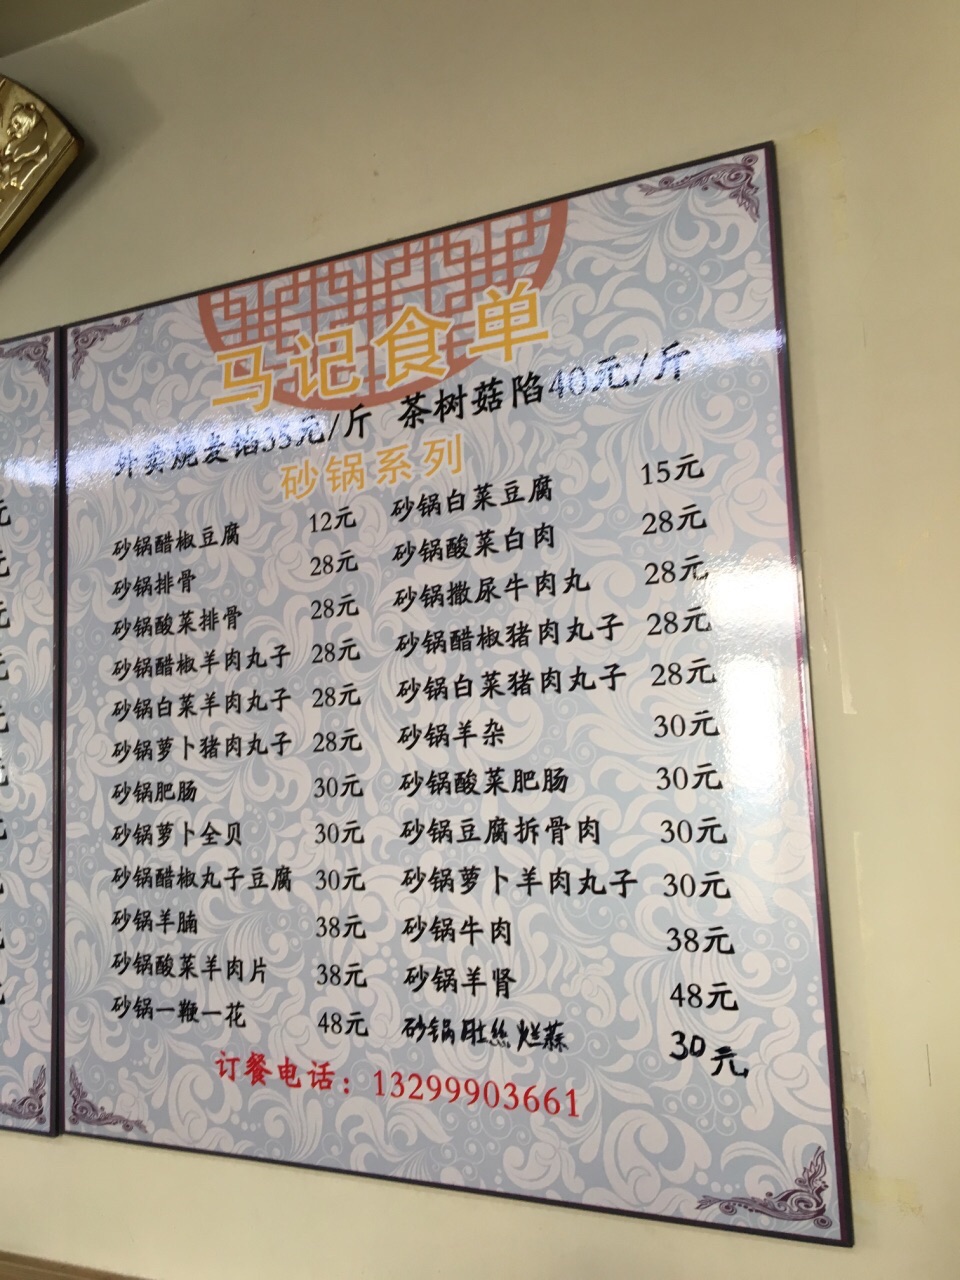 马记食单
外卖烧麦馅35元/斤 茶树菇陷40元/斤
砂锅系列
砂锅醋椒豆腐 12元 砂锅白菜豆腐 15元
砂锅排骨 28元 砂锅酸菜白肉 28元
砂锅酸菜排骨 28元 砂锅撒尿牛肉丸 28元
砂锅醋椒羊肉丸子 28元 砂锅醋椒猪肉丸子 28元
砂锅白菜羊肉丸子 28元 砂锅白菜猪肉丸子 28元
砂锅萝卜猪肉丸子 28元 砂锅羊杂 30元
砂锅肥肠 30元 砂锅酸菜肥肠 30元
砂锅萝卜全贝 30元 砂锅豆腐拆骨肉 30元
砂锅醋椒丸子豆腐 30元 砂锅萝卜羊肉丸子 30元
砂锅羊腩 38元 砂锅牛肉 38元
砂锅酸菜羊肉片 38元 砂锅羊肾 48元
砂锅一鞭一花 48元 砂锅肚丝烂蒜 30元
订餐电话：13299903661
元
元
元
元
元
元
元
元
元
元